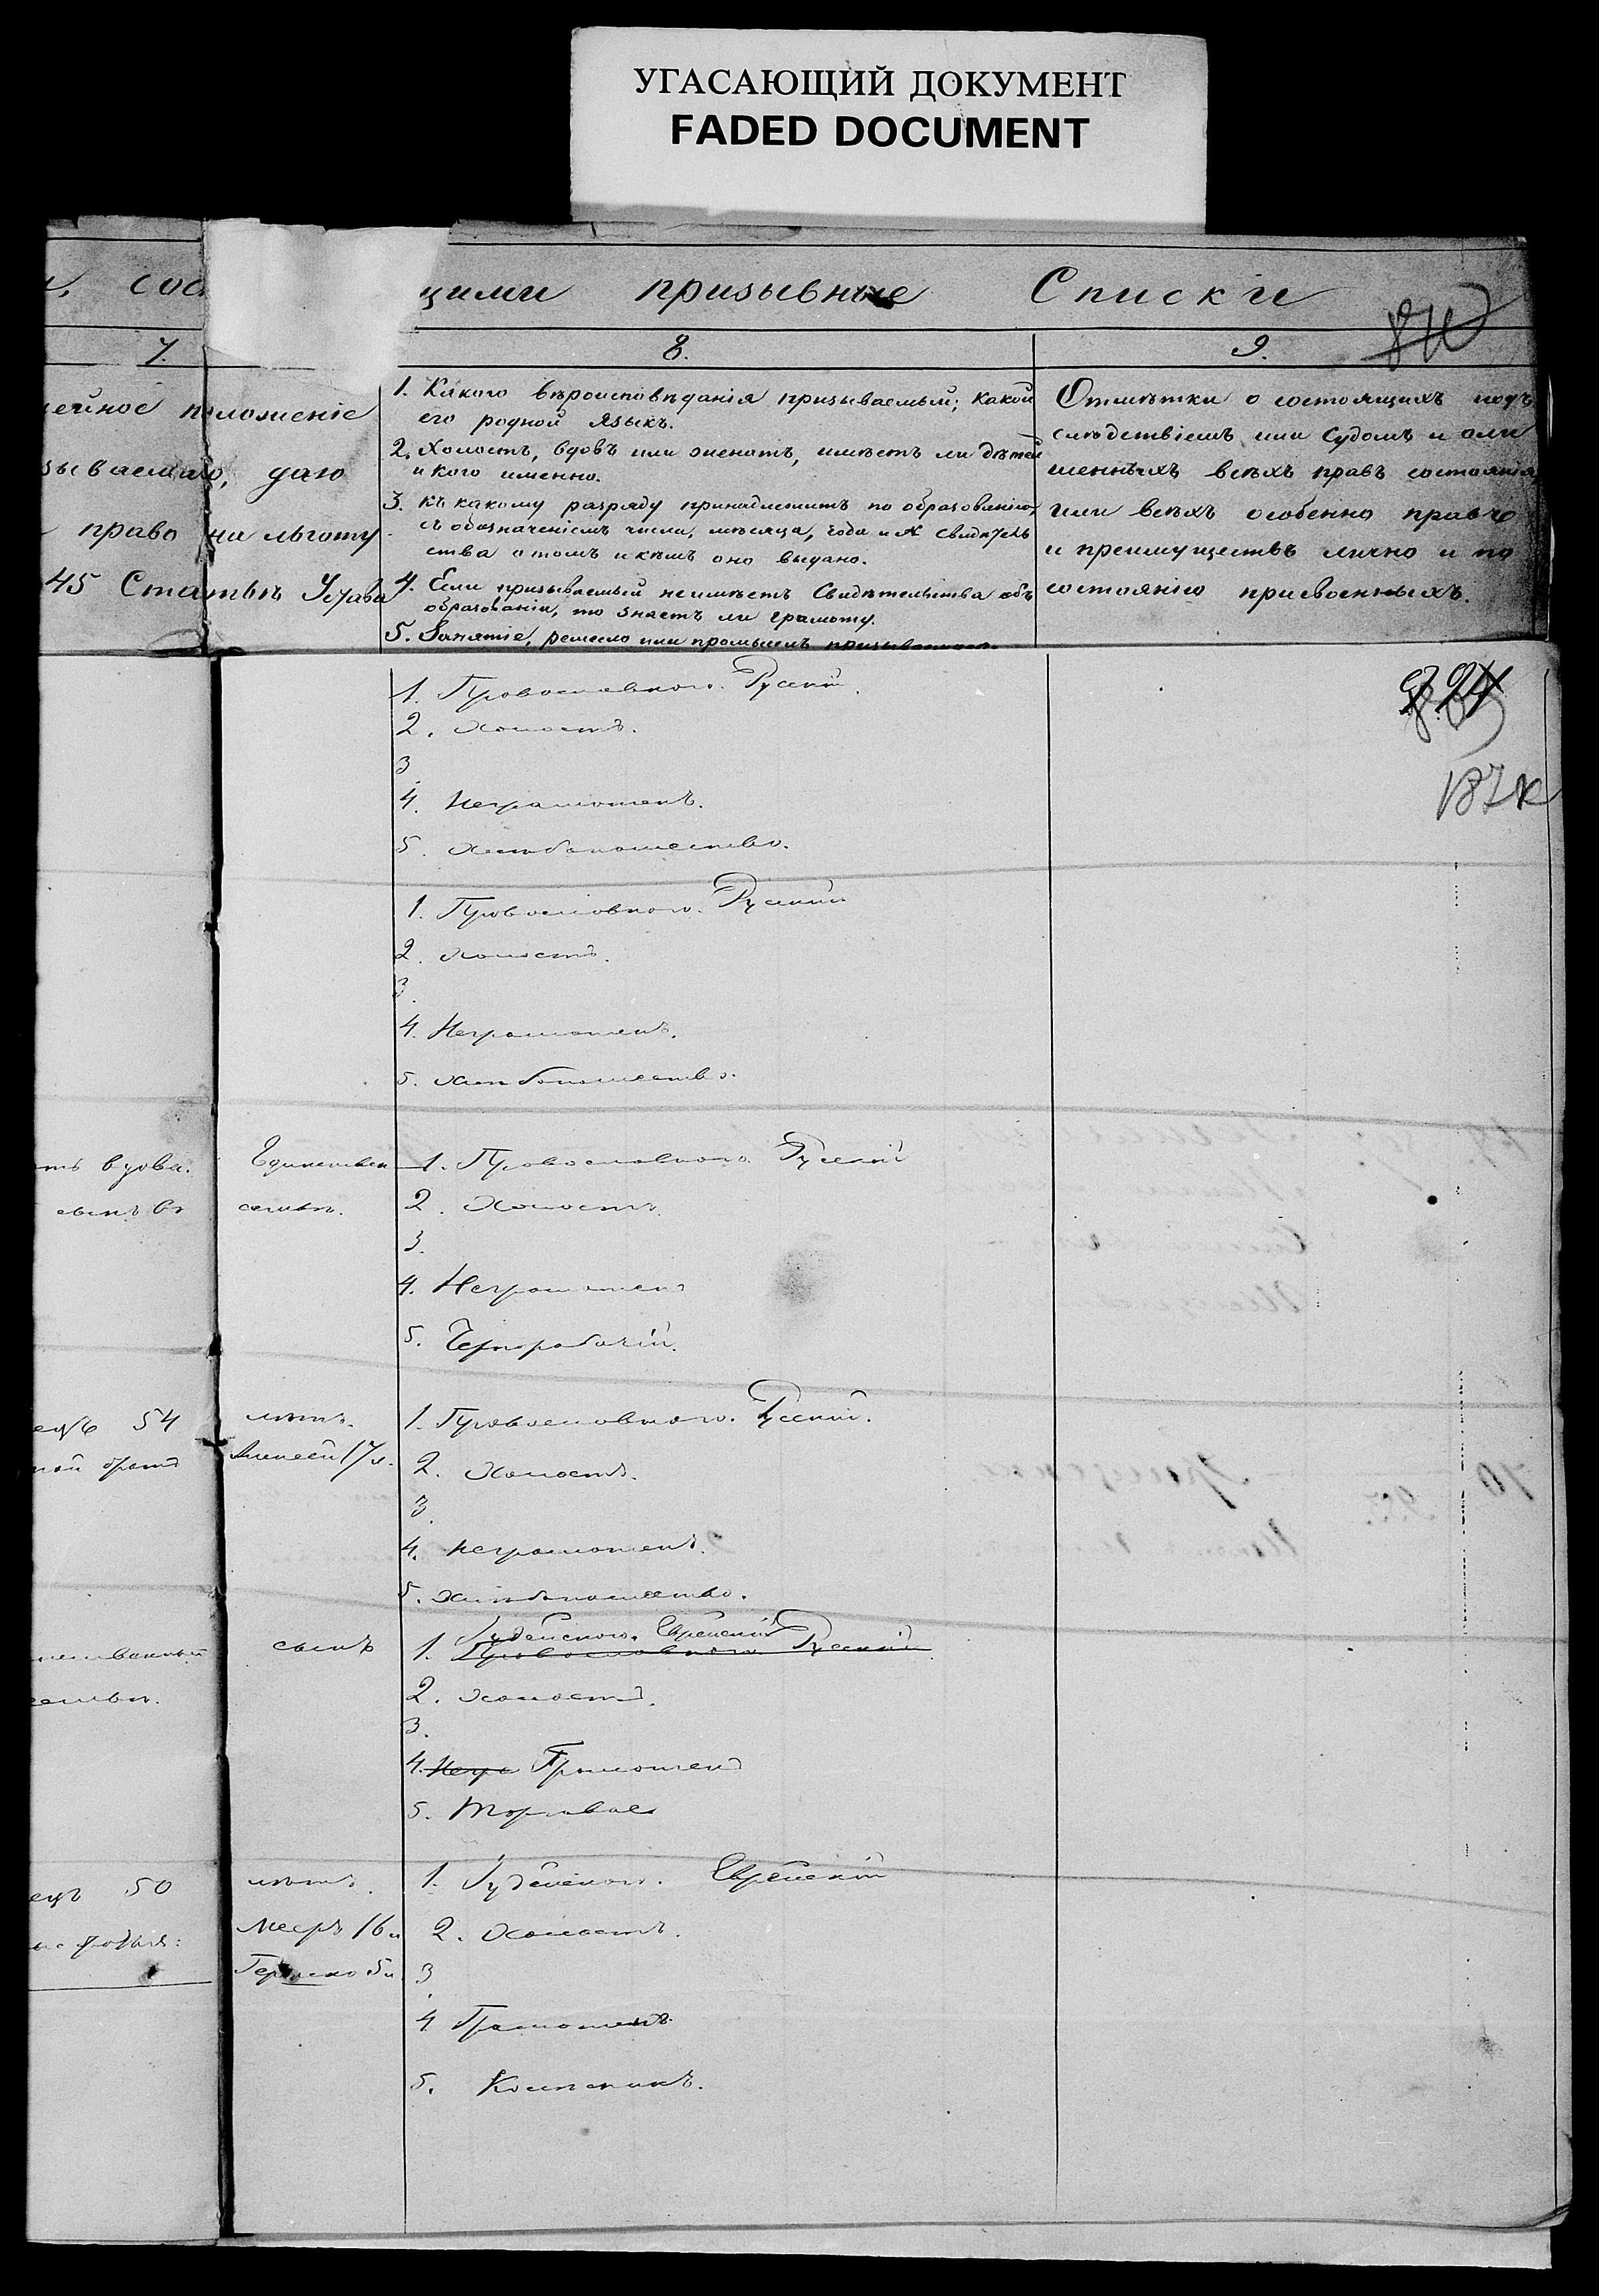 УГАСАЮЩИЙ ДОКУМЕНТ
FADED DOCUMENT
щими призывные Списки
7.
8.
9.
ейное положеніе
зываемаго, даю
право на льготу
45 Статьѣ Устава
1. Какого вѣроисповѣданія призываемый; какой
его родной языкъ.
2. Холостъ, вдовъ или женатъ, имѣетъ ли дѣтей
и кого именно.
3. къ какому разряду принадлежитъ по образованію,
съ обозначеніемъ числа, мѣсяца, года и № свидѣтель
ства о томъ и кѣмъ оно выдано.
4. Если призываемый неимѣетъ Свидѣтельства объ
образованіи, то знаетъ ли грамоту.
5. Занятіе, ремесло или промыселъ призываемаго.
Отмѣтки о состоящихъ подъ
слѣдствіемъ или Судомъ и о ли
шенныхъ всѣхъ правъ состоянія
или всѣхъ особенно правъ
и преимуществъ лично и по
состоянію присвоенныхъ.
1. Православнаго. Русскій.
2. Холостъ.
3
4. Неграмотенъ.
5. Хлѣбопашество.
187
1. Православнаго. Русскій
2. Холостъ.
3.
4. Неграмотенъ.
5. Хлѣбопашество.
ть вдовы. Единствен
сынъ въ семьѣ.
1. Православнаго Русскій
2. Холостъ.
3.
4. Неграмотенъ
5. Чернорабочій.
ецъ 54 лѣтъ.
ной братъ Алексѣй 17 л.
1. Православнаго. Русскій.
2. Холостъ.
3.
4. Неграмотенъ.
5. Хлѣбопашество.
сынъ
семьѣ.
Іудейскаго. Еврейскій
1. Православнаго Русскій
2. Холостъ.
3.
4. Негр Грамотенъ
5. Торговля
ецъ 50 лѣтъ.
Мееръ 16 л
5 л.
1. Іудейскаго. Еврейскій
2. Холостъ.
3
4 Грамотенъ.
5.